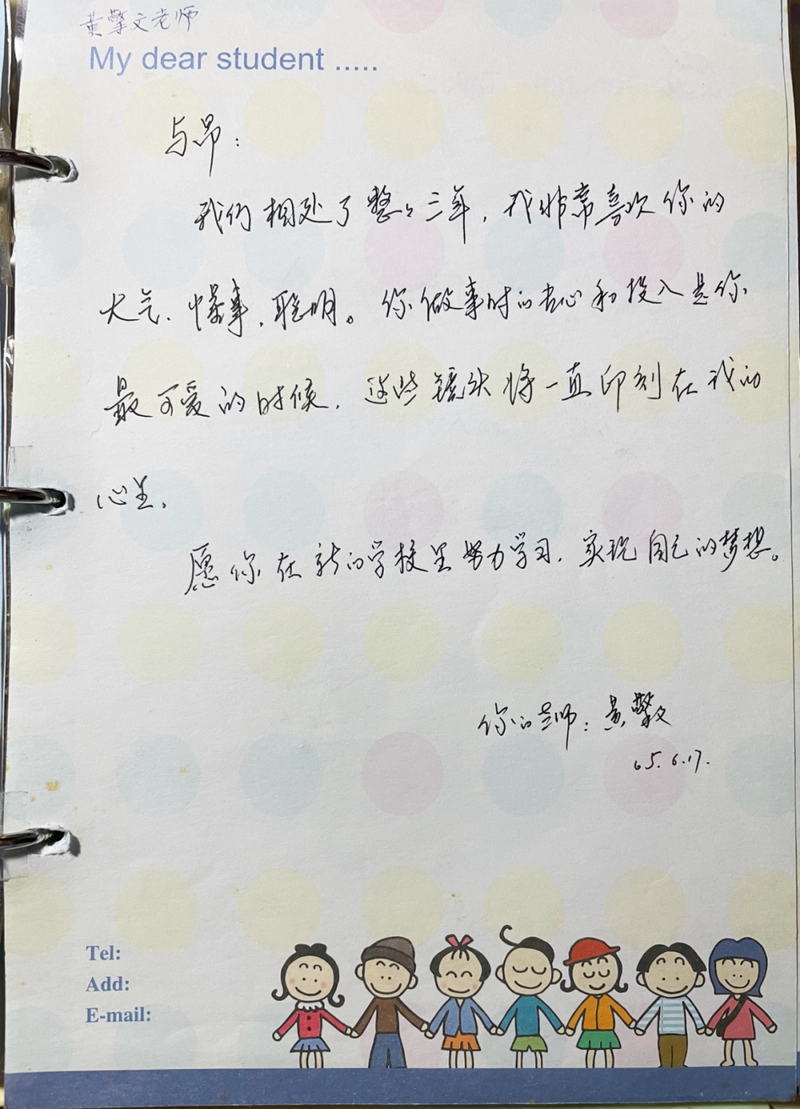 黄擎文老师
My dear student .....
与昂：
我们相处了整整三年，我非常喜欢你的
大气、懂事、聪明。你做事时的专心和投入是你
最可爱的时候，这些镜头将一直印刻在我的
心里。
愿你在新的学校里努力学习，实现自己的梦想。
你的老师：黄擎文
05.6.17.
Tel:
Add:
E-mail: